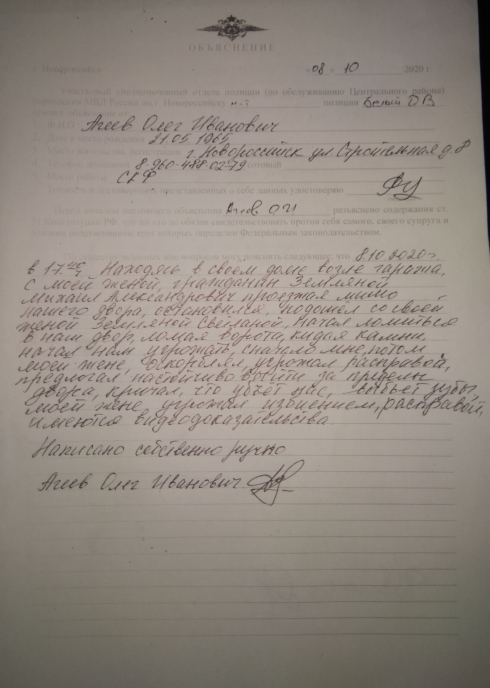 ОБЪЯСНЕНИЕ
г. Новороссийск 08 10 2020 г.
Участковый уполномоченный отдела полиции (по обслуживанию Центрального района)
Управления МВД России по г. Новороссийску м-р полиции Белый О В
Агеев Олег Иванович
21.05.1965
г. Новороссийск ул. Строительная д.
8-960-488-0279
Агеев О И разъяснено содержания ст.
против себя самого, своего супруга и
определен Федеральным законодательством.
следующее, что 8.10.2020г.
в 17 Находясь в своем доме возле гаража,
с моей женой, гражданин Земляной
Михаил Александрович проезжая мимо
нашего двора, остановился, подошел со своей
женой Земляной Светланой, начал ломиться
в наш двор, ломая ворота, кидая камни,
начал нам угрожать, сначало мне, потом
моей жене, оскорблял угрожал расправой,
предлогал настойчиво выйти за пределы
двора, кричал, что убьет нас, выбьет зубы,
моей жене угрожал избиением, расправой,
имеются видеодоказательства.
Написано собственно ручно
Агеев Олег Иванович